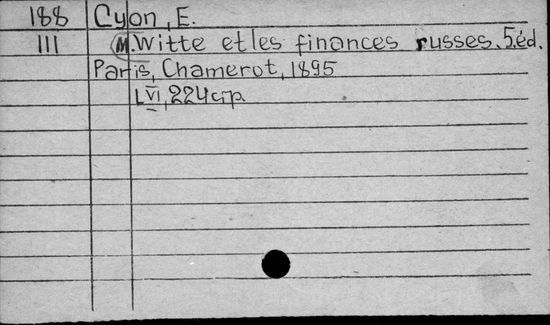 188 Cyon, E.
III M. Witte et les finances russes. 5. éd.
Paris, Chamerot, 1895
LVI, 224 стр.